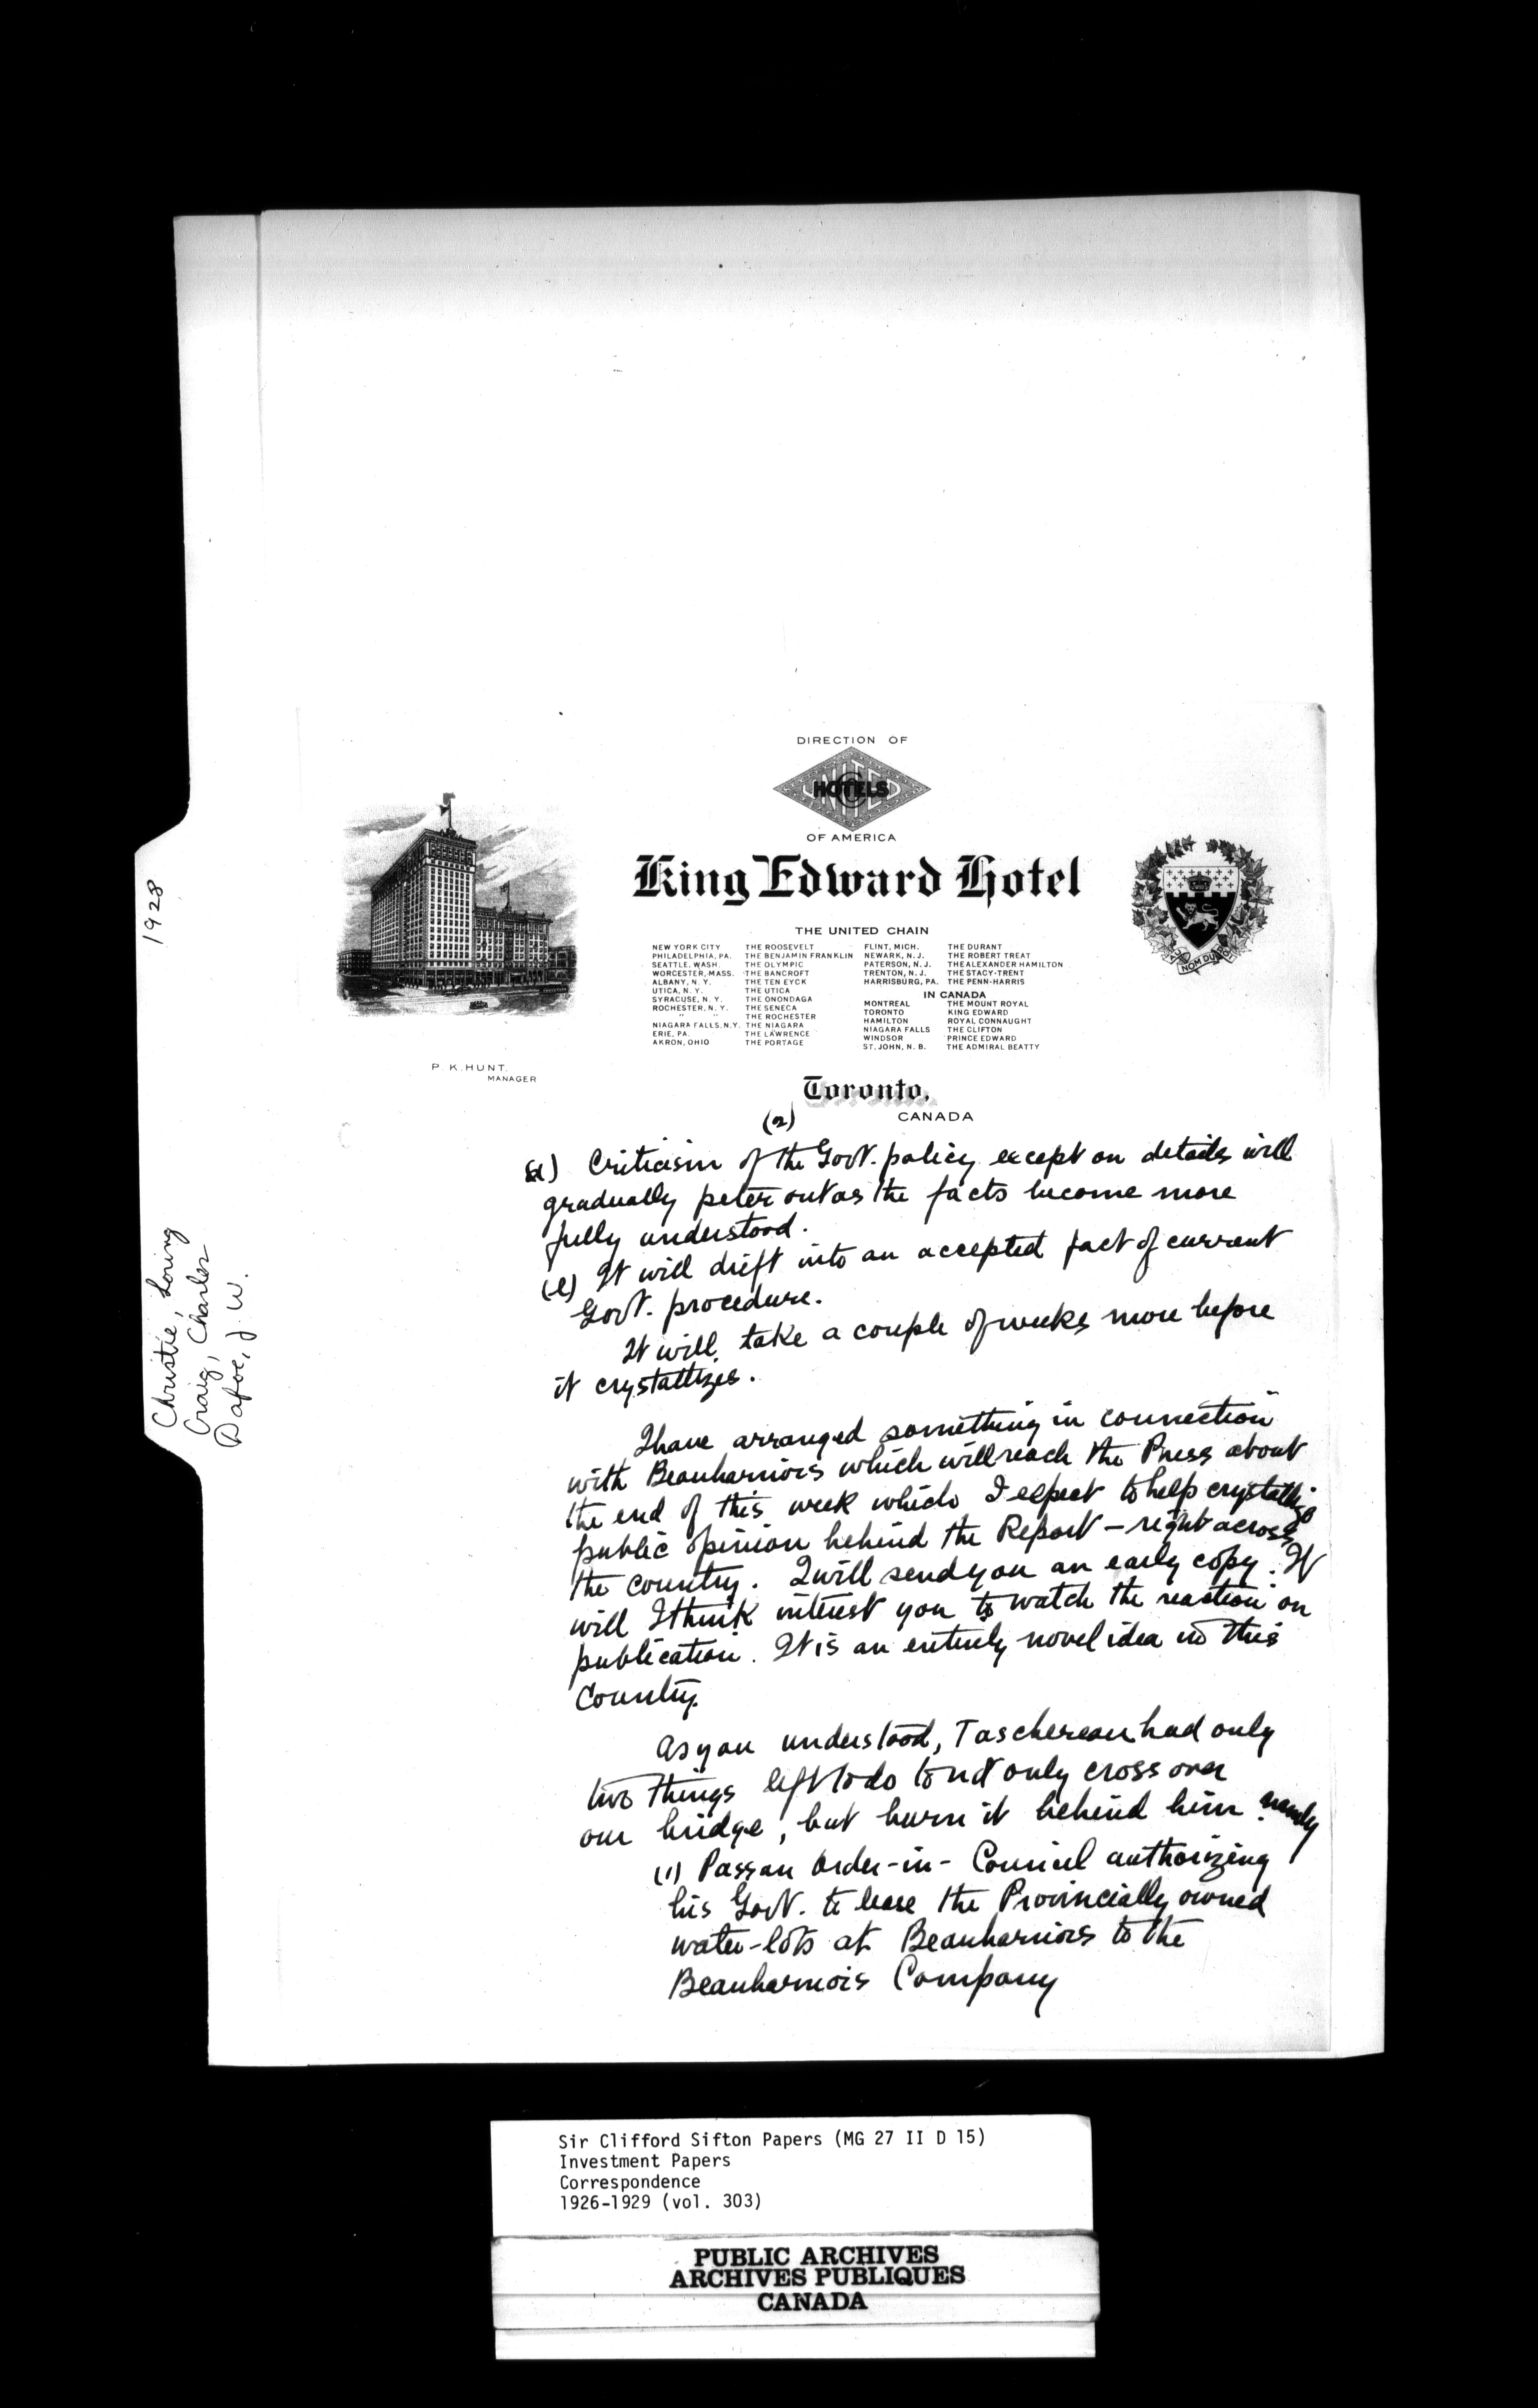 1928
Christie, Loring
Craig, Charles
Dafoe, J. W.
DIRECTION OF
UNITED HOTELS CO
OF AMERICA
King Edward Hotel
THE UNITED CHAIN
NEW YORK CITY THE ROOSEVELT FLINT, MICH. THE DURANT
PHILADELPHIA, PA. THE BENJAMIN FRANKLIN NEWARK, N. J. THE ROBERT TREAT
SEATTLE, WASH. THE OLYMPIC PATERSON, N. J. THE ALEXANDER HAMILTON
WORCESTER, MASS. THE BANCROFT TRENTON, N. J. THE STACY-TRENT
ALBANY, N. Y. THE TEN EYCK HARRISBURG, PA. THE PENN-HARRIS
UTICA, N. Y. THE UTICA IN CANADA
SYRACUSE, N. Y. THE ONONDAGA MONTREAL THE MOUNT ROYAL
ROCHESTER, N. Y. THE SENECA TORONTO KING EDWARD
" " THE ROCHESTER HAMILTON ROYAL CONNAUGHT
NIAGARA FALLS, N.Y. THE NIAGARA NIAGARA FALLS THE CLIFTON
ERIE, PA. THE LAWRENCE WINDSOR PRINCE EDWARD
AKRON, OHIO THE PORTAGE ST. JOHN, N. B. THE ADMIRAL BEATTY
P. K. HUNT.
MANAGER
Toronto,
CANADA
(2)
(d) Criticism of the Govt. policy except on details will
gradually peter out as the facts become more
fully understood.
(e) It will drift into an accepted fact of current
Govt. procedure.
It will take a couple of weeks more before
it crystallizes.
I have arranged something in connection
with Beauharnois which will reach the Press about
the end of this week which I expect to help crystallize
public opinion behind the Report – right across
the country. I will send you an early copy. It
will I think interest you to watch the reaction on
publication. It is an entirely novel idea in this
Country.
As you understood, Taschereau had only
two things left to do to not only cross over
our bridge, but burn it behind him namely
(1) Pass an Order-in-Council authorizing
his Govt. to lease the Provincially owned
water-lots at Beauharnois to the
Beauharnois Company
Sir Clifford Sifton Papers (MG 27 II D 15)
Investment Papers
Correspondence
1926-1929 (vol. 303)
PUBLIC ARCHIVES
ARCHIVES PUBLIQUES
CANADA